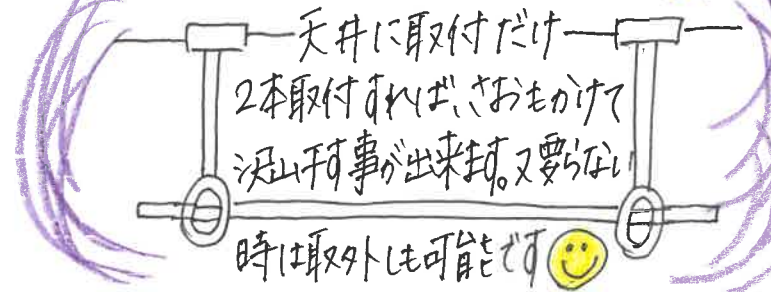 天井に取付だけ
2本取付すれば、さおもかけて
沢山干す事が出来ます。又要らない
時は取外しも可能です